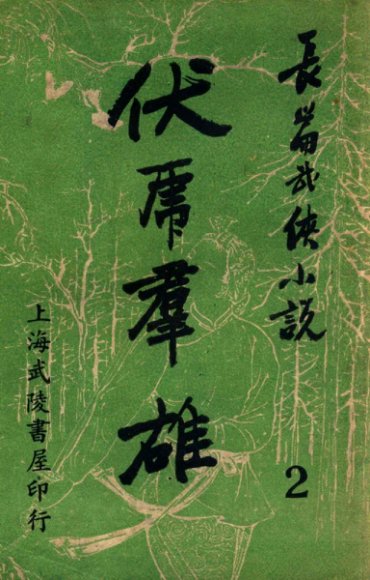 長篇武俠小說
2
伏虎羣雄
上海武陵書屋印行